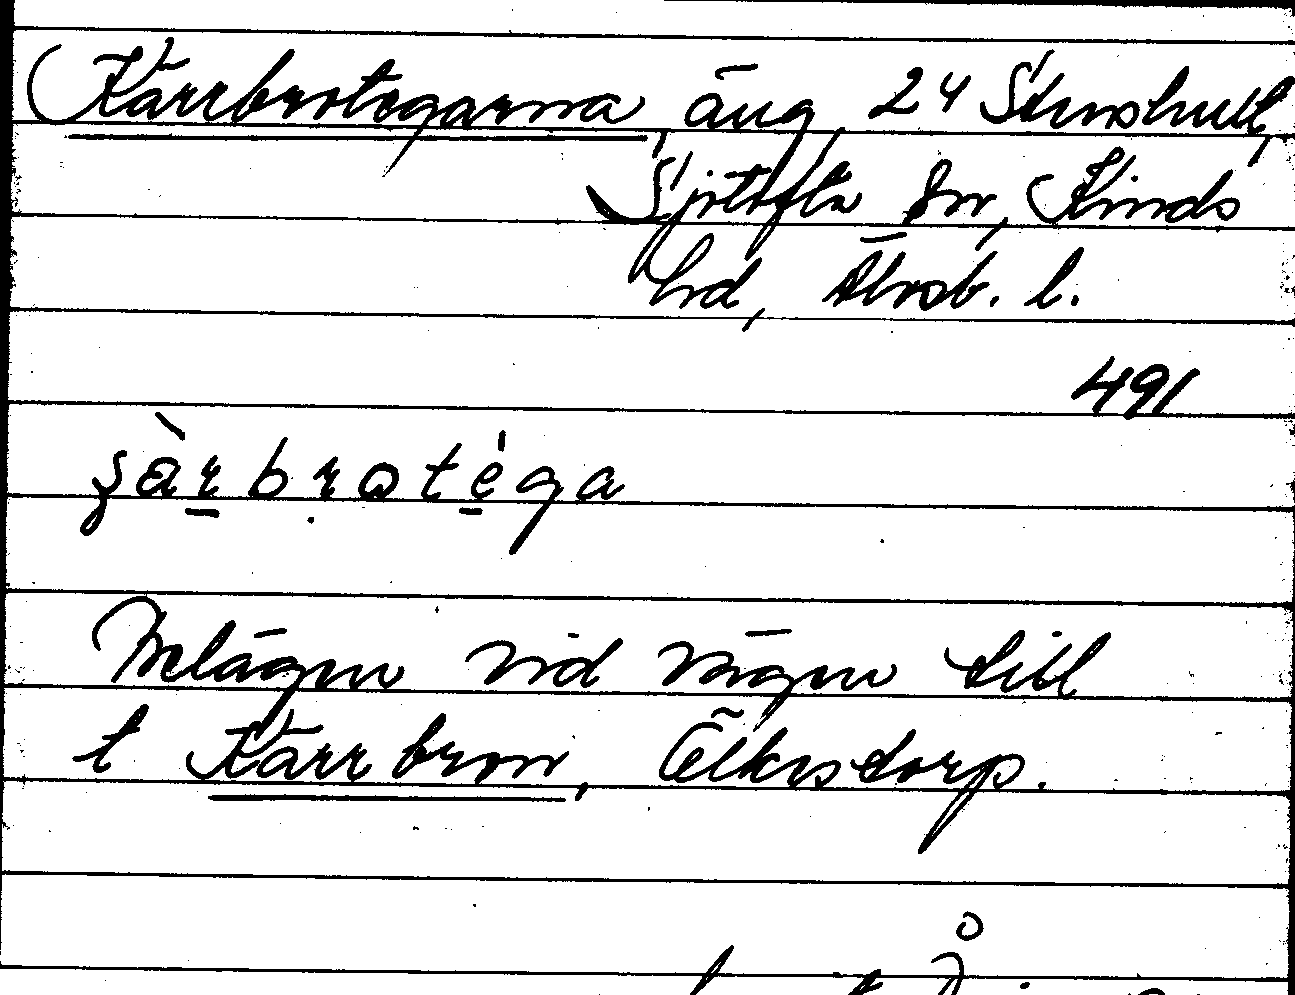 Kärrbrotegarna, äng, 24 Stenshult,
Sjötofta sn, Kinds
hd, Älvsb. l.
491
Belägen vid vägen till
t Kärrbron, Ölkestorp.